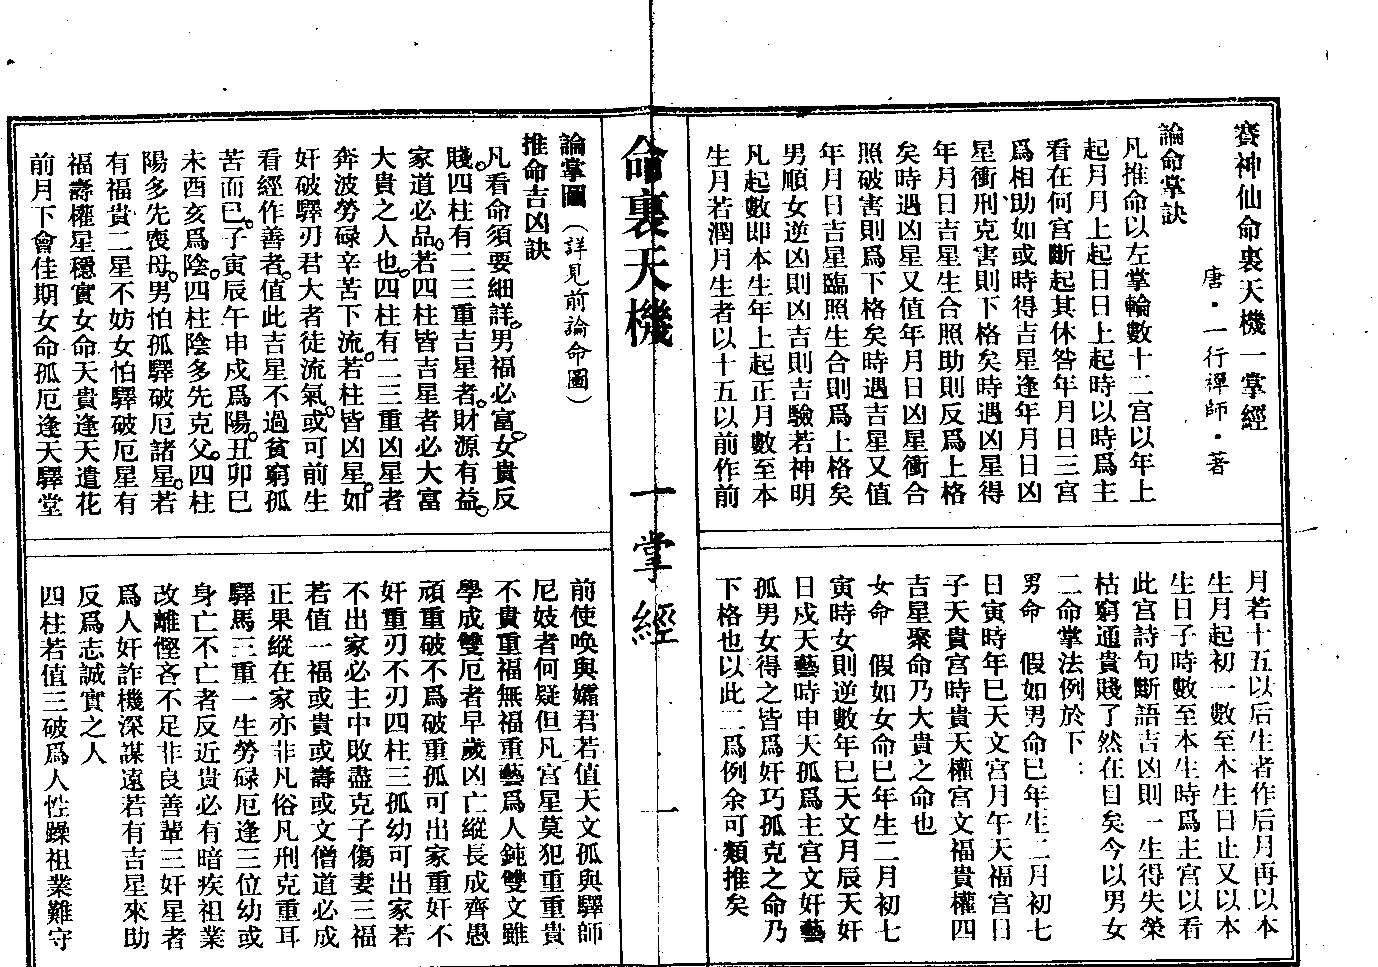 賽神仙命裏天機一掌經
唐・一行禪師・著
論命掌訣
凡推命以左掌輪數十二宮以年上
起月月上起日日上起時以時爲主
看在何宮斷起其休咎年月日三宮
爲相助如或時得吉星逢年月日凶
星衝刑克害則下格矣時遇凶星得
年月日吉星生合照助則反爲上格
矣時遇凶星又值年月日凶星衝合
照破害則爲下格矣時遇吉星又值
年月日吉星臨照生合則爲上格矣
男順女逆凶則凶吉則吉驗若神明
凡起數即本生年上起正月數至本
生月若潤月生者以十五以前作前
月若十五以后生者作后月再以本
生月起初一數至本生日止又以本
生日子時數至本生時爲主宮以看
此宮詩句斷語吉凶則一生得失榮
枯窮通貴賤了然在目矣今以男女
二命掌法例於下：
男命　假如男命巳年生二月初七
日寅時年巳天文宮月午天福宮日
子天貴宮時貴天權宮文福貴權四
吉星聚命乃大貴之命也
女命　假如女命巳年生二月初七
寅時女則逆數年巳天文月辰天奸
日戌天藝時申天孤爲主宮文奸藝
孤男女得之皆爲奸巧孤克之命乃
下格也以此二爲例余可類推矣
命裏天機　一掌經　一
論掌圖（詳見前論命圖）
推命吉凶訣
凡看命須要細詳。男福必富。女貴反
賤。四柱有二三重吉星者。財源有益。
家道必品。若四柱皆吉星者必大富
大貴之人也。四柱有二三重凶星者
奔波勞碌辛苦下流。若柱皆凶星。如
奸破驛刃君大者徒流氣。或可前生
看經作善者。值此吉星不過貧窮孤
苦而已。子寅辰午申戌爲陽。丑卯巳
未酉亥爲陰。四柱陰多先克父。四柱
陽多先喪母。男怕孤驛破厄諸星。若
有福貴二星不妨女怕驛破厄星有
福壽權星穩實女命天貴逢天遣花
前月下會佳期女命孤厄逢天驛堂
前使喚與孀君若值天文孤與驛師
尼妓者何疑但凡宮星莫犯重重貴
不貴重福無福重藝爲人鈍雙文雖
學成雙厄者早歲凶亡縱長成齊愚
頑重破不爲破重孤可出家重奸不
奸重刃不刃四柱三孤幼可出家若
不出家必主中敗盡克子傷妻三福
若值一福或貴或壽或文僧道必成
正果縱在家亦非凡俗凡刑克重耳
驛馬三重一生勞碌厄逢三位幼或
身亡不亡者反近貴必有暗疾祖業
改離慳吝不足非良善輩三奸星者
爲人奸詐機深謀遠若有吉星來助
反爲志誠實之人
四柱若值三破爲人性躁祖業難守